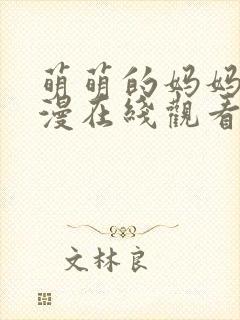 萌萌的妈妈
漫在线觀看
文林良